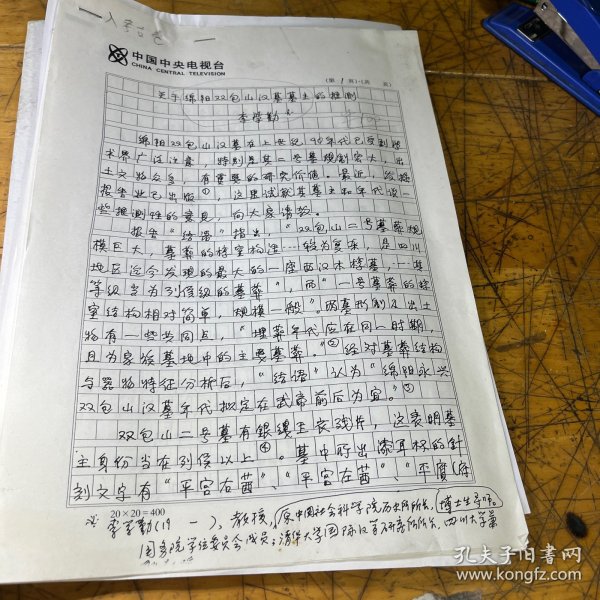 中国中央电视台
CHINA CENTRAL TELEVISION
(第 1 页)(共 页)
关于绵阳双包山汉墓墓主的推测
李学勤*
绵阳双包山汉墓在上世纪90年代已受到学
术界广泛注意，特别是其二号墓规制宏大，出
土文物众多，有重要的研究价值。最近，发掘
报告业已出版①，这里试就其墓主和年代提一
些推测性的意见，向大家请教。
报告“结语”指出：“双包山二号墓葬规
模巨大，墓葬的椁室构造……较为复杂，是四川
地区迄今发现的最大的一座西汉木椁墓，……其
等级当为列侯级的墓葬”，而“一号墓葬的椁
室结构相对简单，规模一般”。两墓形制及出土
物有一些共同点，“埋葬年代应在同一时期，
且为家族墓地中的主要墓葬。”②经对墓葬结构
与器物特征分析后，“结语”认为“绵阳永兴
双包山汉墓年代拟定在武帝前后为宜。”③
双包山二号墓有银缕玉衣残片，这表明墓
主身份当在列侯以上④。墓中所出漆耳杯的针
刻文字有“平宫右莤”、“平宫左莤”、“平广（序
20×20=400
李学勤(19 —)，教授，原中国社会科学院历史所所长，博士生导师。
国务院学位委员会成员；清华大学国际汉学研究所所长，四川大学兼
孔夫子旧书网
www.kongfz.com